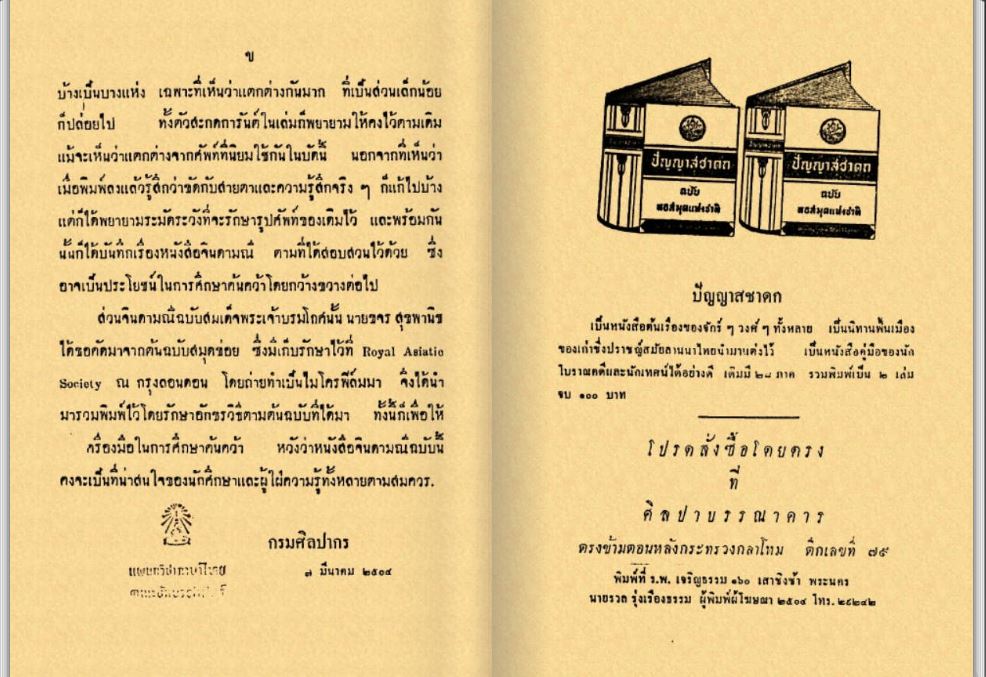 ข
บ้างเป็นบางแห่ง เฉพาะที่เห็นว่าแตกต่างกันมาก ที่เป็นส่วนเล็กน้อย
ก็ปล่อยไป ทั้งตัวสะกดการันต์ในเล่มก็พยายามให้คงไว้ตามเดิม
แม้จะเห็นว่าแตกต่างจากศัพท์ที่นิยมใช้กันในบัดนี้ นอกจากที่เห็นว่า
เมื่อพิมพ์ลงแล้วรู้สึกว่าขัดกับสายตาและความรู้สึกจริง ๆ ก็แก้ไปบ้าง
แต่ก็ได้พยายามระมัดระวังที่จะรักษารูปศัพท์ของเดิมไว้ และพร้อมกัน
นั้นก็ได้บันทึกเรื่องหนังสือจินดามณี ตามที่ได้สอบสวนไว้ด้วย ซึ่ง
อาจเป็นประโยชน์ในการศึกษาค้นคว้าโดยกว้างขวางต่อไป
ส่วนจินดามณีฉบับสมเด็จพระเจ้าบรมโกศนั้น นายขจร สุขพานิช
ได้ขอคัดมาจากต้นฉบับสมุดข่อย ซึ่งมีเก็บรักษาไว้ที่ Royal Asiatic
Society ณ กรุงลอนดอน โดยถ่ายทำเป็นไมโครฟิล์มมา จึงได้นำ
มารวมพิมพ์ไว้โดยรักษาอักขรวิธีตามต้นฉบับที่ได้มา ทั้งนี้ก็เพื่อให้
เครื่องมือในการศึกษาค้นคว้า หวังว่าหนังสือจินดามณีฉบับนี้
คงจะเป็นที่น่าสนใจของนักศึกษาและผู้ใฝ่ความรู้ทั้งหลายตามสมควร.
กรมศิลปากร
๗ มีนาคม ๒๕๐๔
แผนกวิชาภาษาไทย
ปัญญาสชาดก
ฉบับ
หอสมุดแห่งชาติ
ปัญญาสชาดก
ฉบับ
หอสมุดแห่งชาติ
ปัญญาสชาดก
เป็นหนังสือต้นเรื่องของจักร์ ๆ วงศ์ ๆ ทั้งหลาย เป็นนิทานพื้นเมือง
ของเก่าซึ่งปราชญ์สมัยลานนาไทยนำมาแต่งไว้ เป็นหนังสือคู่มือของนัก
โบราณคดีและนักเทศน์ได้อย่างดี เดิมมี ๒๘ ภาค รวมพิมพ์เป็น ๒ เล่ม
จบ ๑๐๐ บาท
โปรดสั่งซื้อโดยตรง
ที่
ศิลปาบรรณาคาร
ตรงข้ามตอนหลังกระทรวงกลาโหม ตึกเลขที่ ๗๕
พิมพ์ที่ ร.พ. เจริญธรรม ๑๖๐ เสาชิงช้า พระนคร
นายรวล รุ่งเรืองธรรม ผู้พิมพ์ผู้โฆษณา ๒๕๐๔ โทร. ๒๕๒๔๒